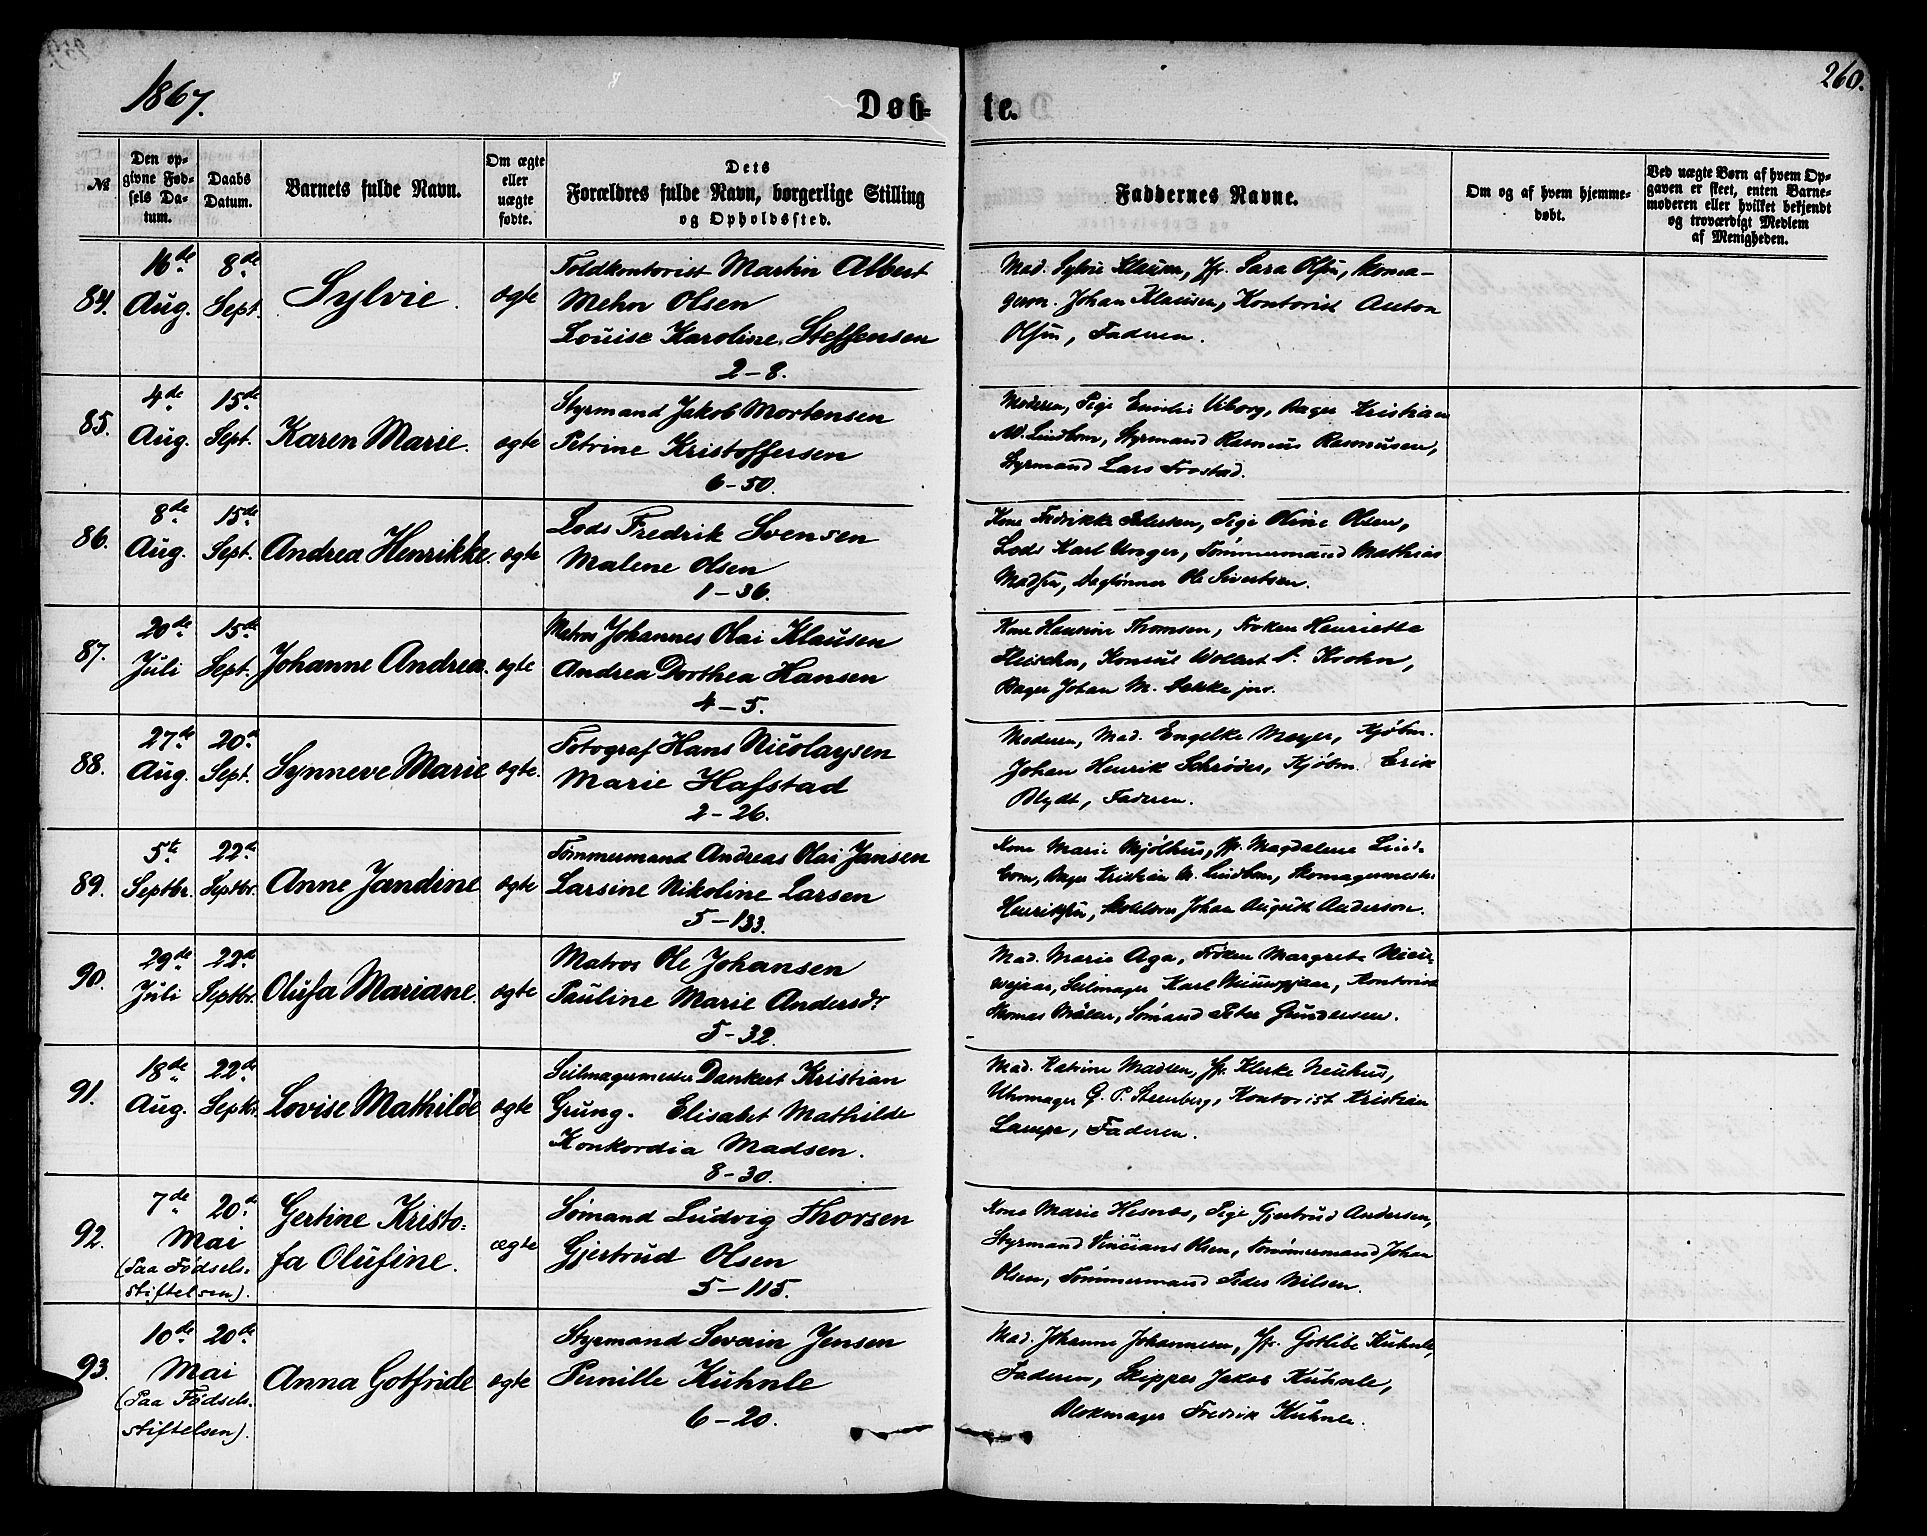 1867.
Døb=
te.
260.
№
Den op-
givne Fød-
sels Da-
tum.
Daabs
Datum.
Barnets fulde Navn.
Om ægte
eller
uægte
fødte.
Dets
Forældres fulde Navn, borgerlige Stilling
og Opholdssted.
Faddernes Navne.
Om og af hvem hjemme-
døbt.
Ved uægte Børn af hvem Op-
gaven er skeet, enten Barne-
moderen eller hvilket bekjendt
og troværdigt Medlem
af Menigheden.
84.
16de
Aug.
8de
Sept.
Sylvie.
ægte
Toldkontorist Martin Albert
Mehn Olsen
Louise Karoline Steffensen
2-8.
Mad. Sylvie Klausen, Jfr. Sara Olsen, Skoma-
gersv. Johan Klausen, Kontorist Anton
Olsen, Faderen.
85.
4de
Aug.
15de
Sept.
Karen Marie.
ægte
Styrmand Jakob Mortensen
Petrine Kristoffersen
6-50.
Moderen, Pige Emilie Viborg, Bager Kristian
M. Lindbom, Styrmand Rasmus Rasmussen,
Styrmand Lars Frostad.
86.
8de
Aug.
15de
Sept.
Andrea Henrikke.
ægte
Lods Fredrik Svensen
Malene Olsen
1-36.
Kone Fredrikke Petersen, Pige Oline Olsen,
Lods Karl Unger, Tømmermand Mathias
Madsen, Daglønner Ole Sivertsen.
87.
20de
Juli
15de
Sept.
Johanne Andrea.
ægte
Matros Johannes Olai Klausen
Andrea Dorthea Hansen
4-5.
Kone Hansine Thomsen, Frøken Henriette
Fleischer, Konsul Wollert D. Krohn,
Bager Johan M. Dekke jnr.
88.
27de
Aug.
20de
Sept.
Synneve Marie
ægte.
Fotograf Hans Nicolaysen
Marie Hafstad
2-26.
Moderen, Mad. Engelke Meyer, Kjøbm.
Johan Henrik Schrøder, Kjøbm. Erik
Blydt, Faderen.
89.
5te
Septbr.
22de
Septbr.
Anne Jandine
ægte
Tømmermand Andreas Olai Jansen
Larsine Nikoline Larsen
5-133.
Kone Marie Mjølhus, Jfr. Magdalene Lind-
bom, Bager Kristian M. Lindbom, Skomagermester
Henriksen, Skolelærer Johan August Anderson.
90.
29de
Juli
22de
Septbr.
Olufa Mariane.
ægte
Matros Ole Johansen
Pauline Marie Andersdr
5-32.
Mad. Marie Aga, Frøken Margrete
Seilmager Karl Kontorist
Thomas Møller, Sømand Peter Gundersen.
91.
18de
Aug.
22de
Septbr.
Lovise Mathilde
ægte
Seilmagermester Dankert Kristian
Grung. Elisabet Mathilde
Konkordia Madsen.
8-30.
Mad. Katrine Madsen, Jfr. Neuhus,
Uhrmager G. P. Steenberg, Kontorist Kristian
Lampe, Faderen.
92.
7de 20de
Mai
(Paa Fødsels-
stiftelsen).
Gertine Kristo=
fa Olufine.
ægte
Sømand Ludvig Thorsen
Gjertrud Olsen
5-115.
Kone Marie Hesnes, Pige Gjertrud Andersen,
Styrmand Vincians Olsen, Tømmermand Johan
Olsen, Tømmermand Peder Nilsen.
93.
10de 20de
Mai
(Paa Fødsels-
stiftelsen).
Anna Gotfride
ægte
Styrmand Severin Jensen
Pernille Kuhnle
6-20.
Mad. Johanne Johannesen, Jfr. Gotlibe Kuhnle,
Faderen, Skipper Jakob Kuhnle,
Blokmager Fredrik Kuhnle.